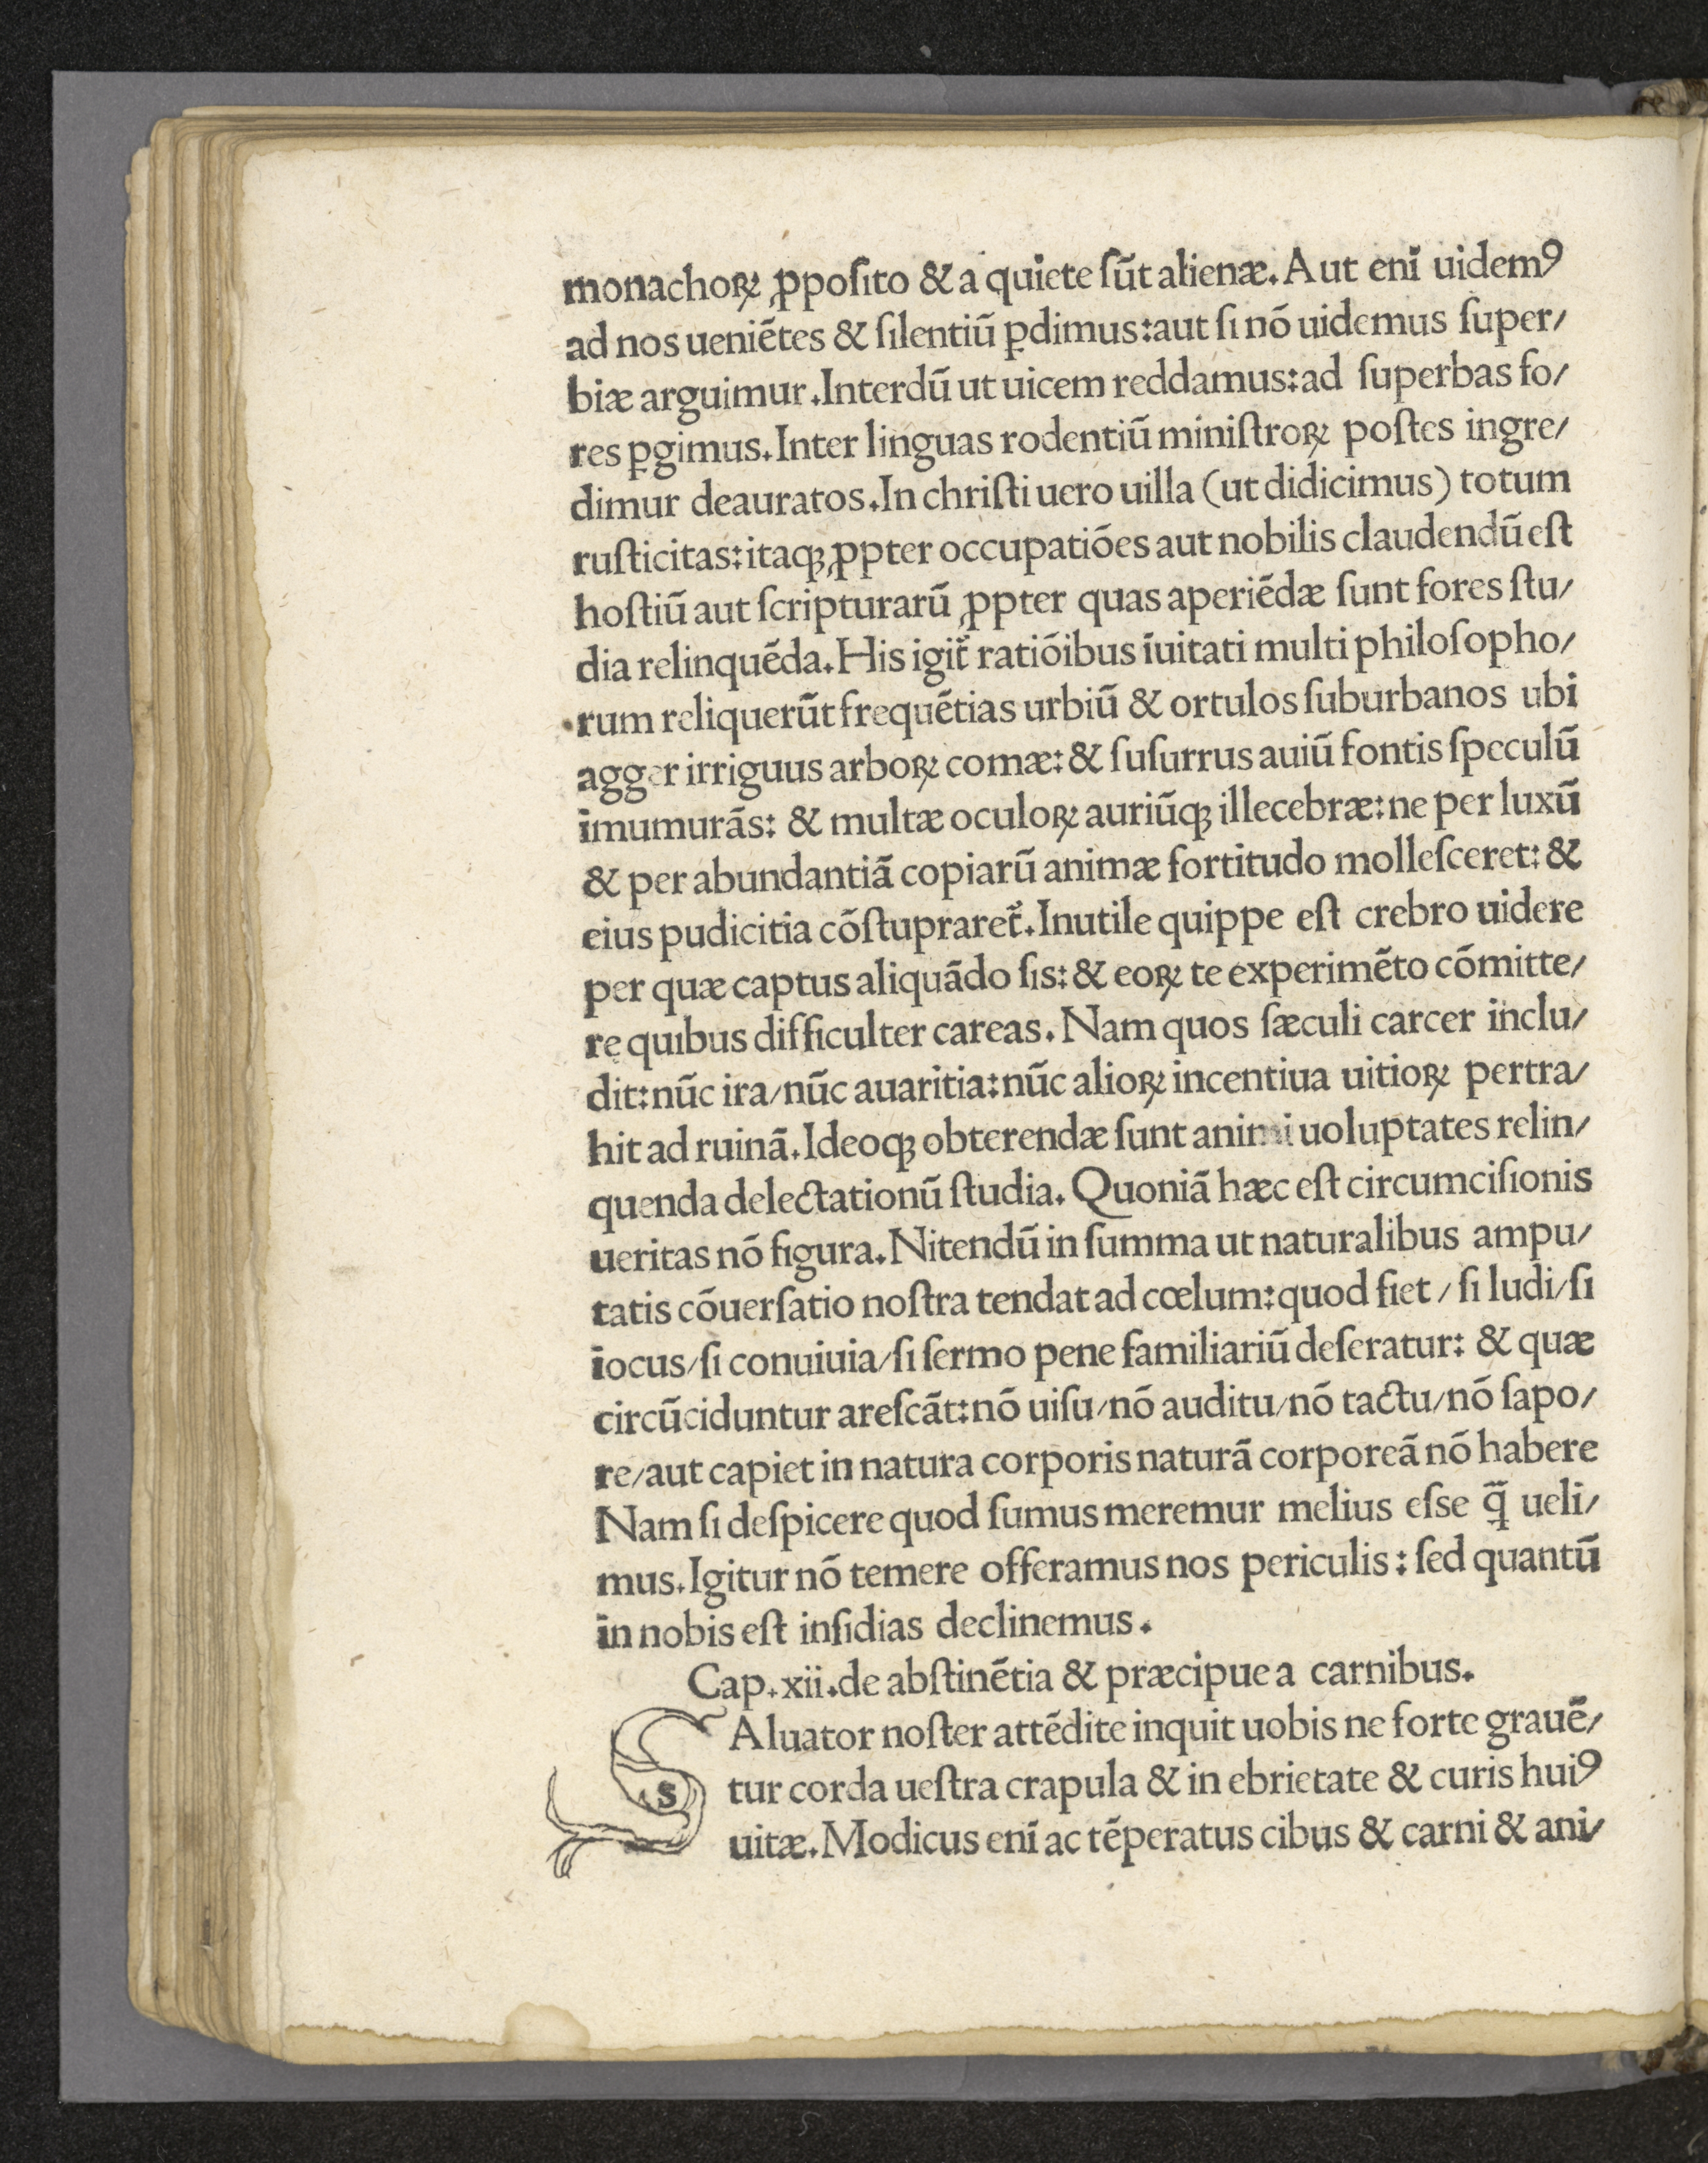 monachoꝝ ꝓposito & a quiete sũt alienæ. Aut enĩ uidemꝰ
ad nos ueniẽtes & silentiũ ꝑdimus: aut si nõ uidemus super/
biæ arguimur. Interdũ ut uicem reddamus: ad superbas fo/
res ꝑgimus. Inter linguas rodentiũ ministroꝝ postes ingre/
dimur deauratos. In christi uero uilla (ut didicimus) totum
rusticitas: itaqꝫ ꝓpter occupatiões aut nobilis claudendũ est
hostiũ aut scripturarũ ꝓpter quas aperiẽdæ sunt fores stu/
dia relinquẽda. His igit᷑ ratiõibus ĩuitati multi philosopho/
rum reliquerũt frequẽtias urbiũ & ortulos suburbanos ubi
agger irriguus arboꝝ comæ: & susurrus auiũ fontis speculũ
ĩmumurãs: & multæ oculoꝝ auriũqꝫ illecebræ: ne per luxũ
& per abundantiã copiarũ animæ fortitudo mollesceret: &
eius pudicitia cõstupraret᷑. Inutile quippe est crebro uidere
per quæ captus aliquãdo sis: & eoꝝ te experimẽto cõmitte/
re quibus difficulter careas. Nam quos sæculi carcer inclu/
dit: nũc ira/nũc auaritia: nũc alioꝝ incentiua uitioꝝ pertra/
hit ad ruinã. Ideoqꝫ obterendæ sunt animi uoluptates relin/
quenda delectationũ studia. Quoniã hæc est circumcisionis
ueritas nõ figura. Nitendũ in summa ut naturalibus ampu/
tatis cõuersatio nostra tendat ad cœlum: quod fiet / si ludi/si
iocus/si conuiuia/si sermo pene familiariũ deseratur: & quæ
circũciduntur arescãt: nõ uisu/nõ auditu/nõ tactu/nõ sapo/
re/aut capiet in natura corporis naturã corporeã nõ habere
Nam si despicere quod sumus meremur melius esse q̃̄ ueli/
mus. Igitur nõ temere offeramus nos periculis: sed quantũ
in nobis est insidias declinemus.
Cap. xii. de abstinẽtia & præcipue a carnibus.
SAluator noster attẽdite inquit uobis ne forte grauẽ/
tur corda uestra crapula & in ebrietate & curis huiꝰ
uitæ. Modicus enĩ ac tẽperatus cibus & carni & ani/